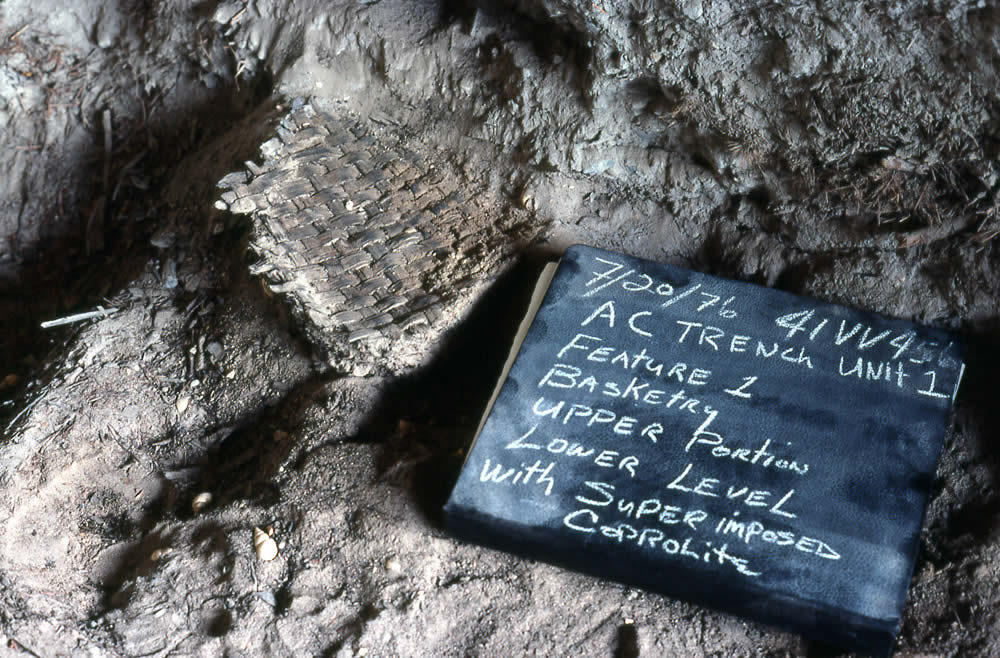 7/20/76 41VV456
AC TRENCh UNit 1
FEATURE 1
BASKEtRy
UPPER PORtiON
LOWER LEVEL
With SUPERimPOSED
COPROLite